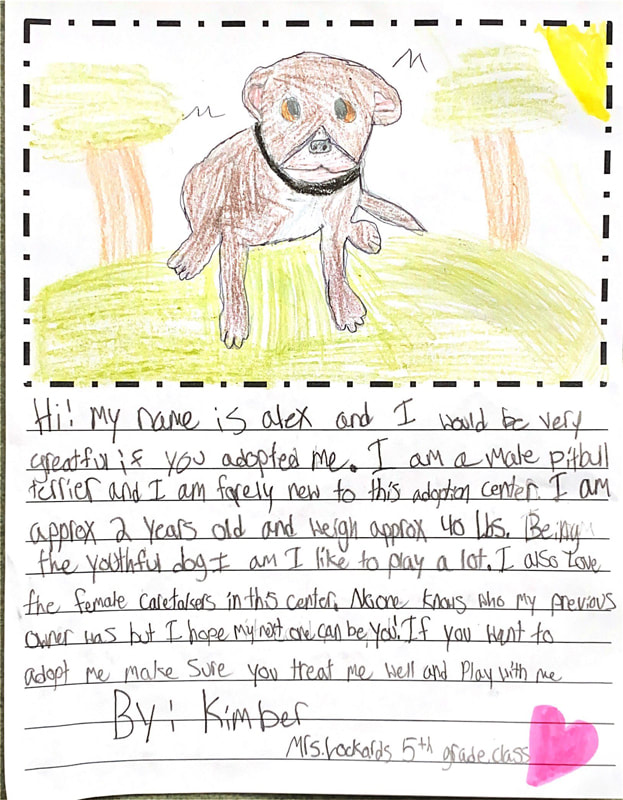 Hi! My name is alex and I would be very
greatful if you adopted me. I am a male pitball
terrier and I am farely new to this adoption center. I am
approx 2 years old and weigh approx 40 lbs. Being
the youthful dog I am I like to play a lot. I also love
the female caretakers in this center. Noone knows who my previous
owner was but I hope my next one can be you! If you want to
adopt me make sure you treat me well and play with me
By: Kimber
Mrs. Lockards 5th grade class